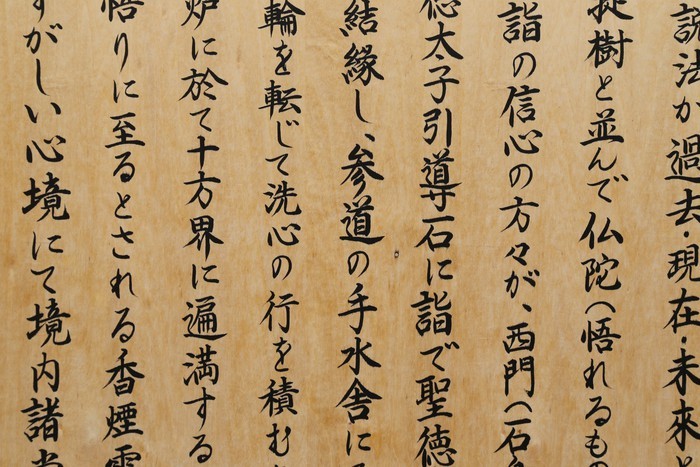 説法が過去・現在・未来
提樹と並んで仏陀（悟れるも
詣の信心の方々が、西門（石
徳太子引導石に詣で聖徳
結縁し、参道の手水舎に
輪を転じて洗心の行を積む
炉に於て十方界に遍満する
悟りに至るとされる香煙
すがしい心境にて境内諸堂